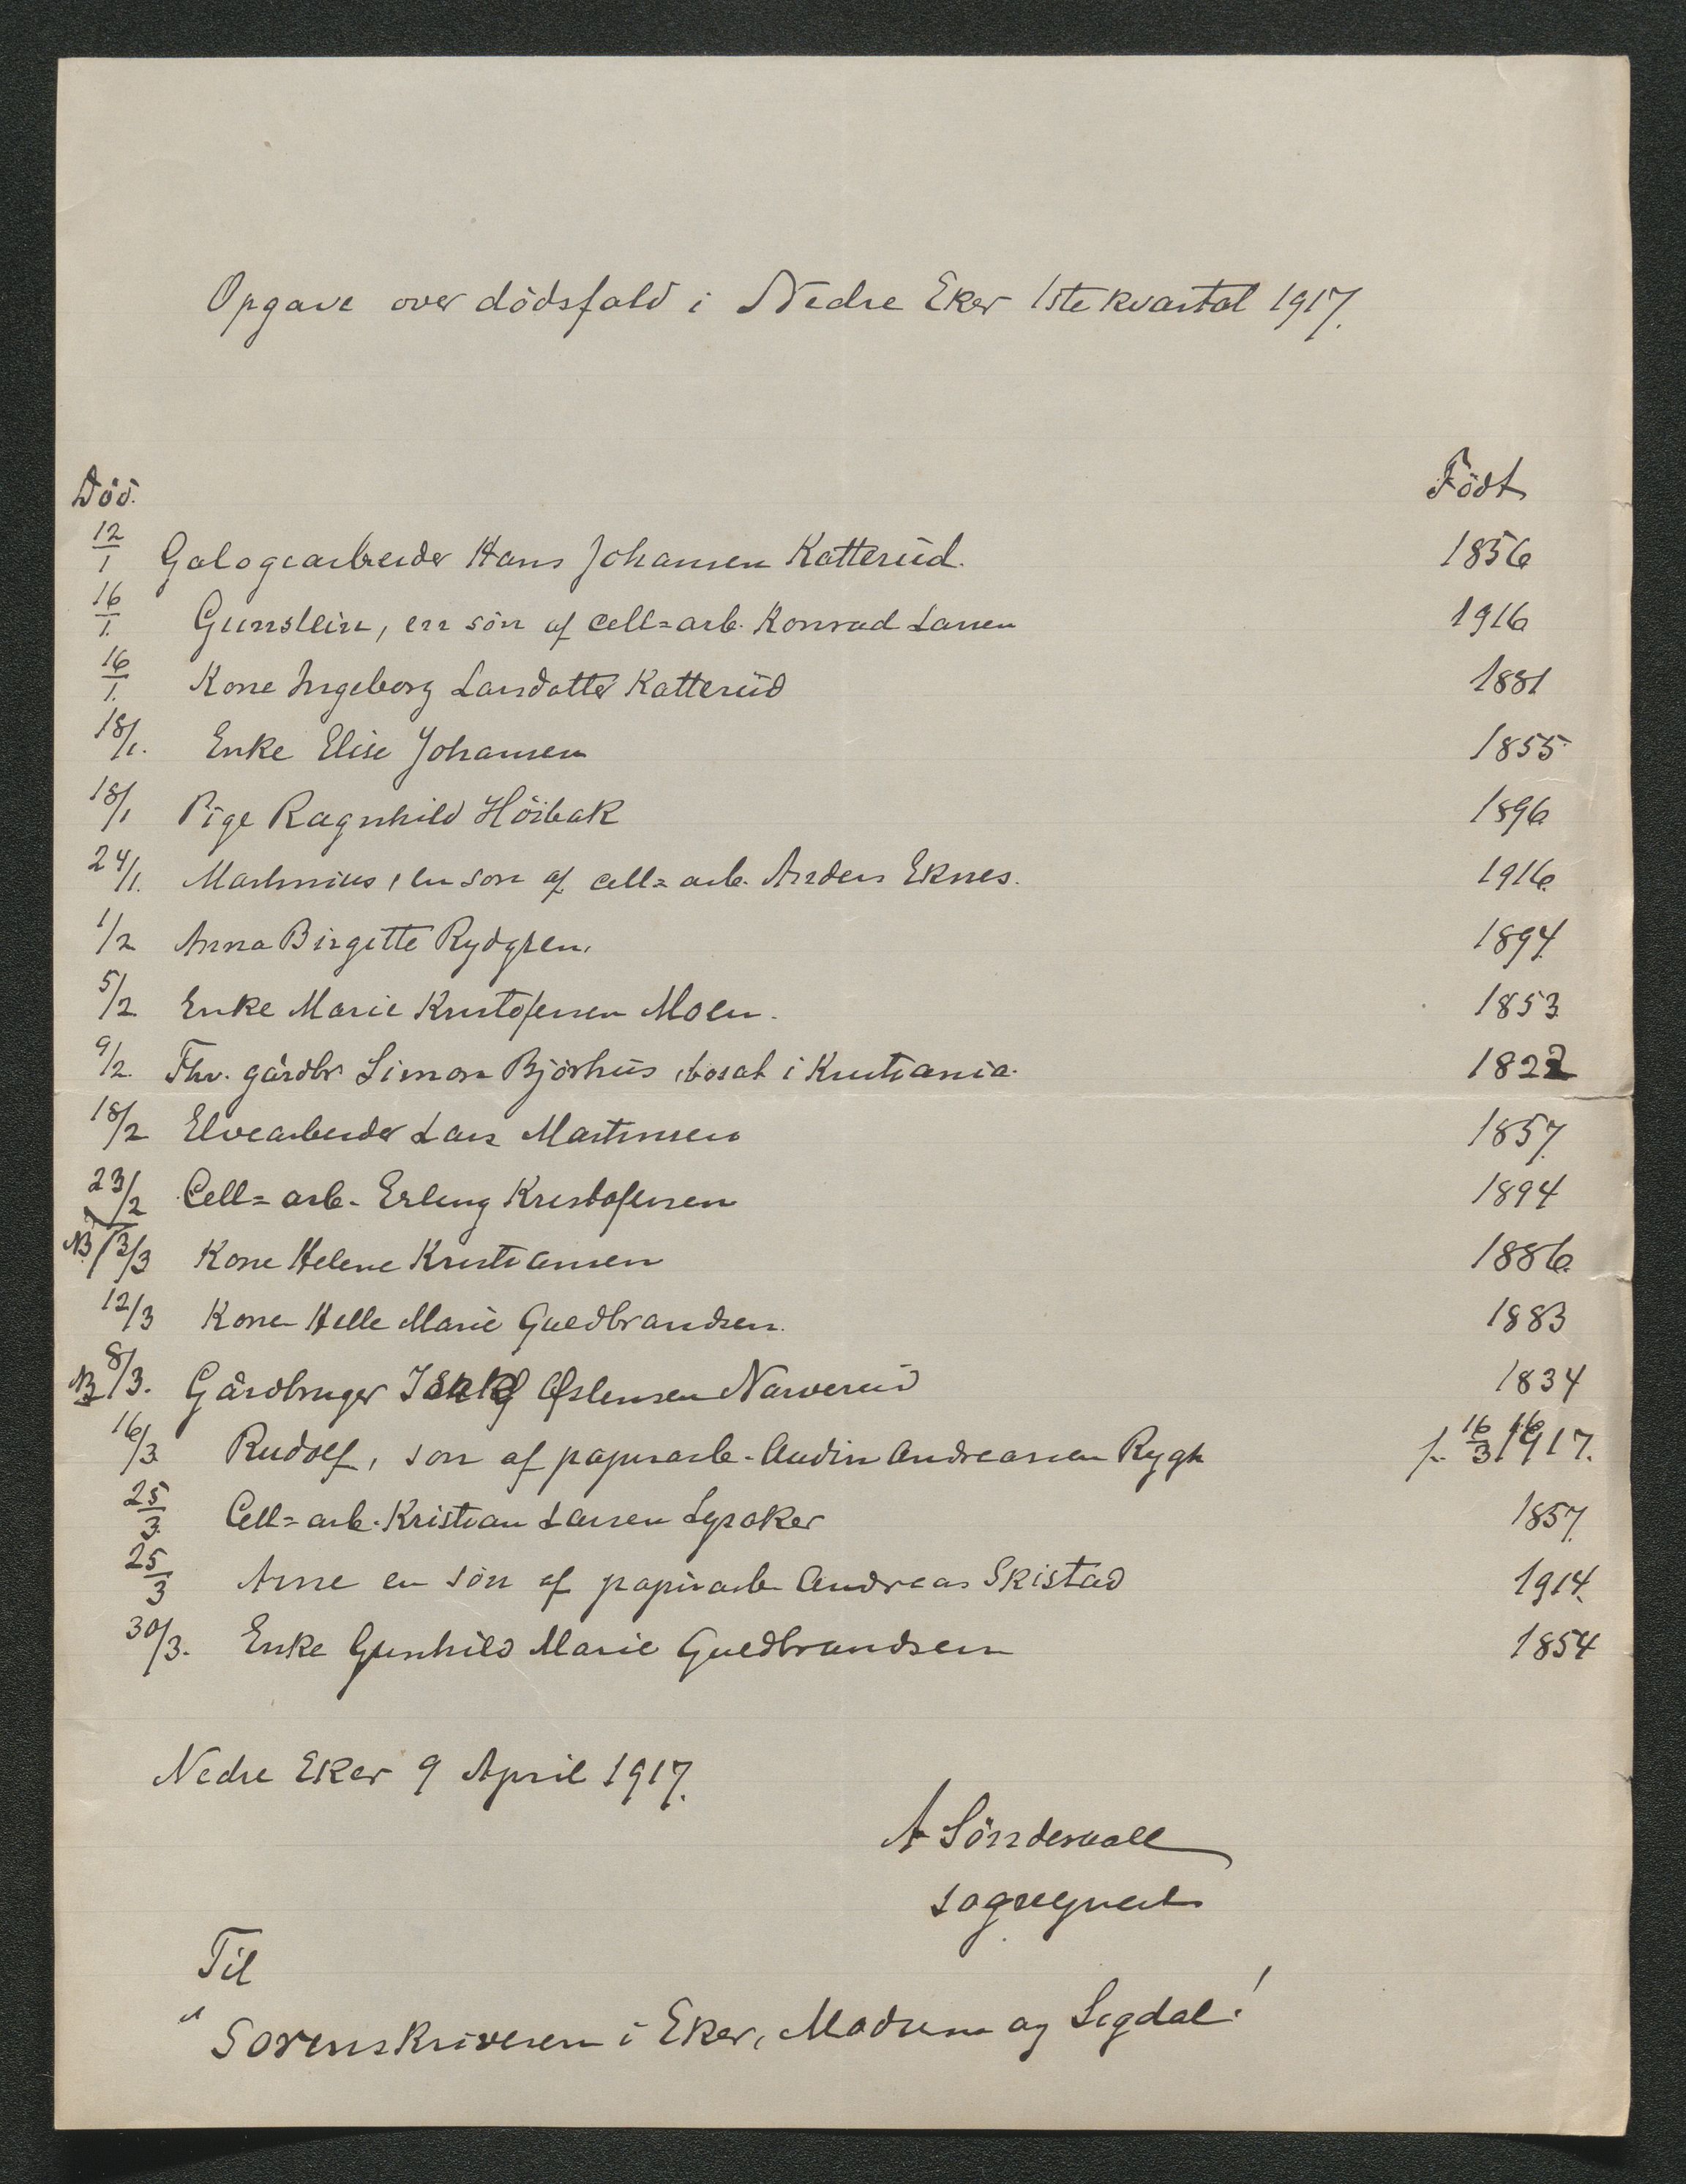 Opgave over dödsfald i Nedre Eker 1ste kvartal 1917.
Död. Födt
12/1 Galogearbeider Hans Johansen Katterud. 1856
16/1. Gunslein, en sön af cell=arb. Konrad Larsen 1916
16/1. Kone Ingeborg Larsdatter Katterud 1881
18/1. Enke Elise Johansen 1855
18/1 Pige Ragnhild Höibak 1896
24/1. Martinius, en son af cell=arb. Anders Eknes. 1916.
1/2 Anna Birgitte Rydgren. 1894.
5/2 Enke Marie Kristofersen Moen. 1853
9/2. Fhv. gårdbr Simon Björhus, bosat i Kristiania. 1822
18/2 Elvearbeider Lars Martinsen 1857.
23/2 Cell=arb. Erling Kristofersen 1894
NB 13/3 Kone Helene Kristiansen 1886.
12/3 Kone Helle Marie Guldbrandsen. 1883
NB 8/3. Gårdbruger Øslensen Narverud 1834
16/3 Rudolf, son af papirarb. Audin Andreassen Rygh f. 16/3 1917.
25/3. Cell=arb. Kristian Larsen Lyraker 1857.
25/3 Arne en sön af papirarb Andreas Skistad 1914.
30/3. Enke Gunhild Marie Guldbrandsen 1854
Nedre Eker 9 April 1917.
A Sönderaall
sogneprest
Til
Sorenskriveren i Eker, Modum og Sigdal!